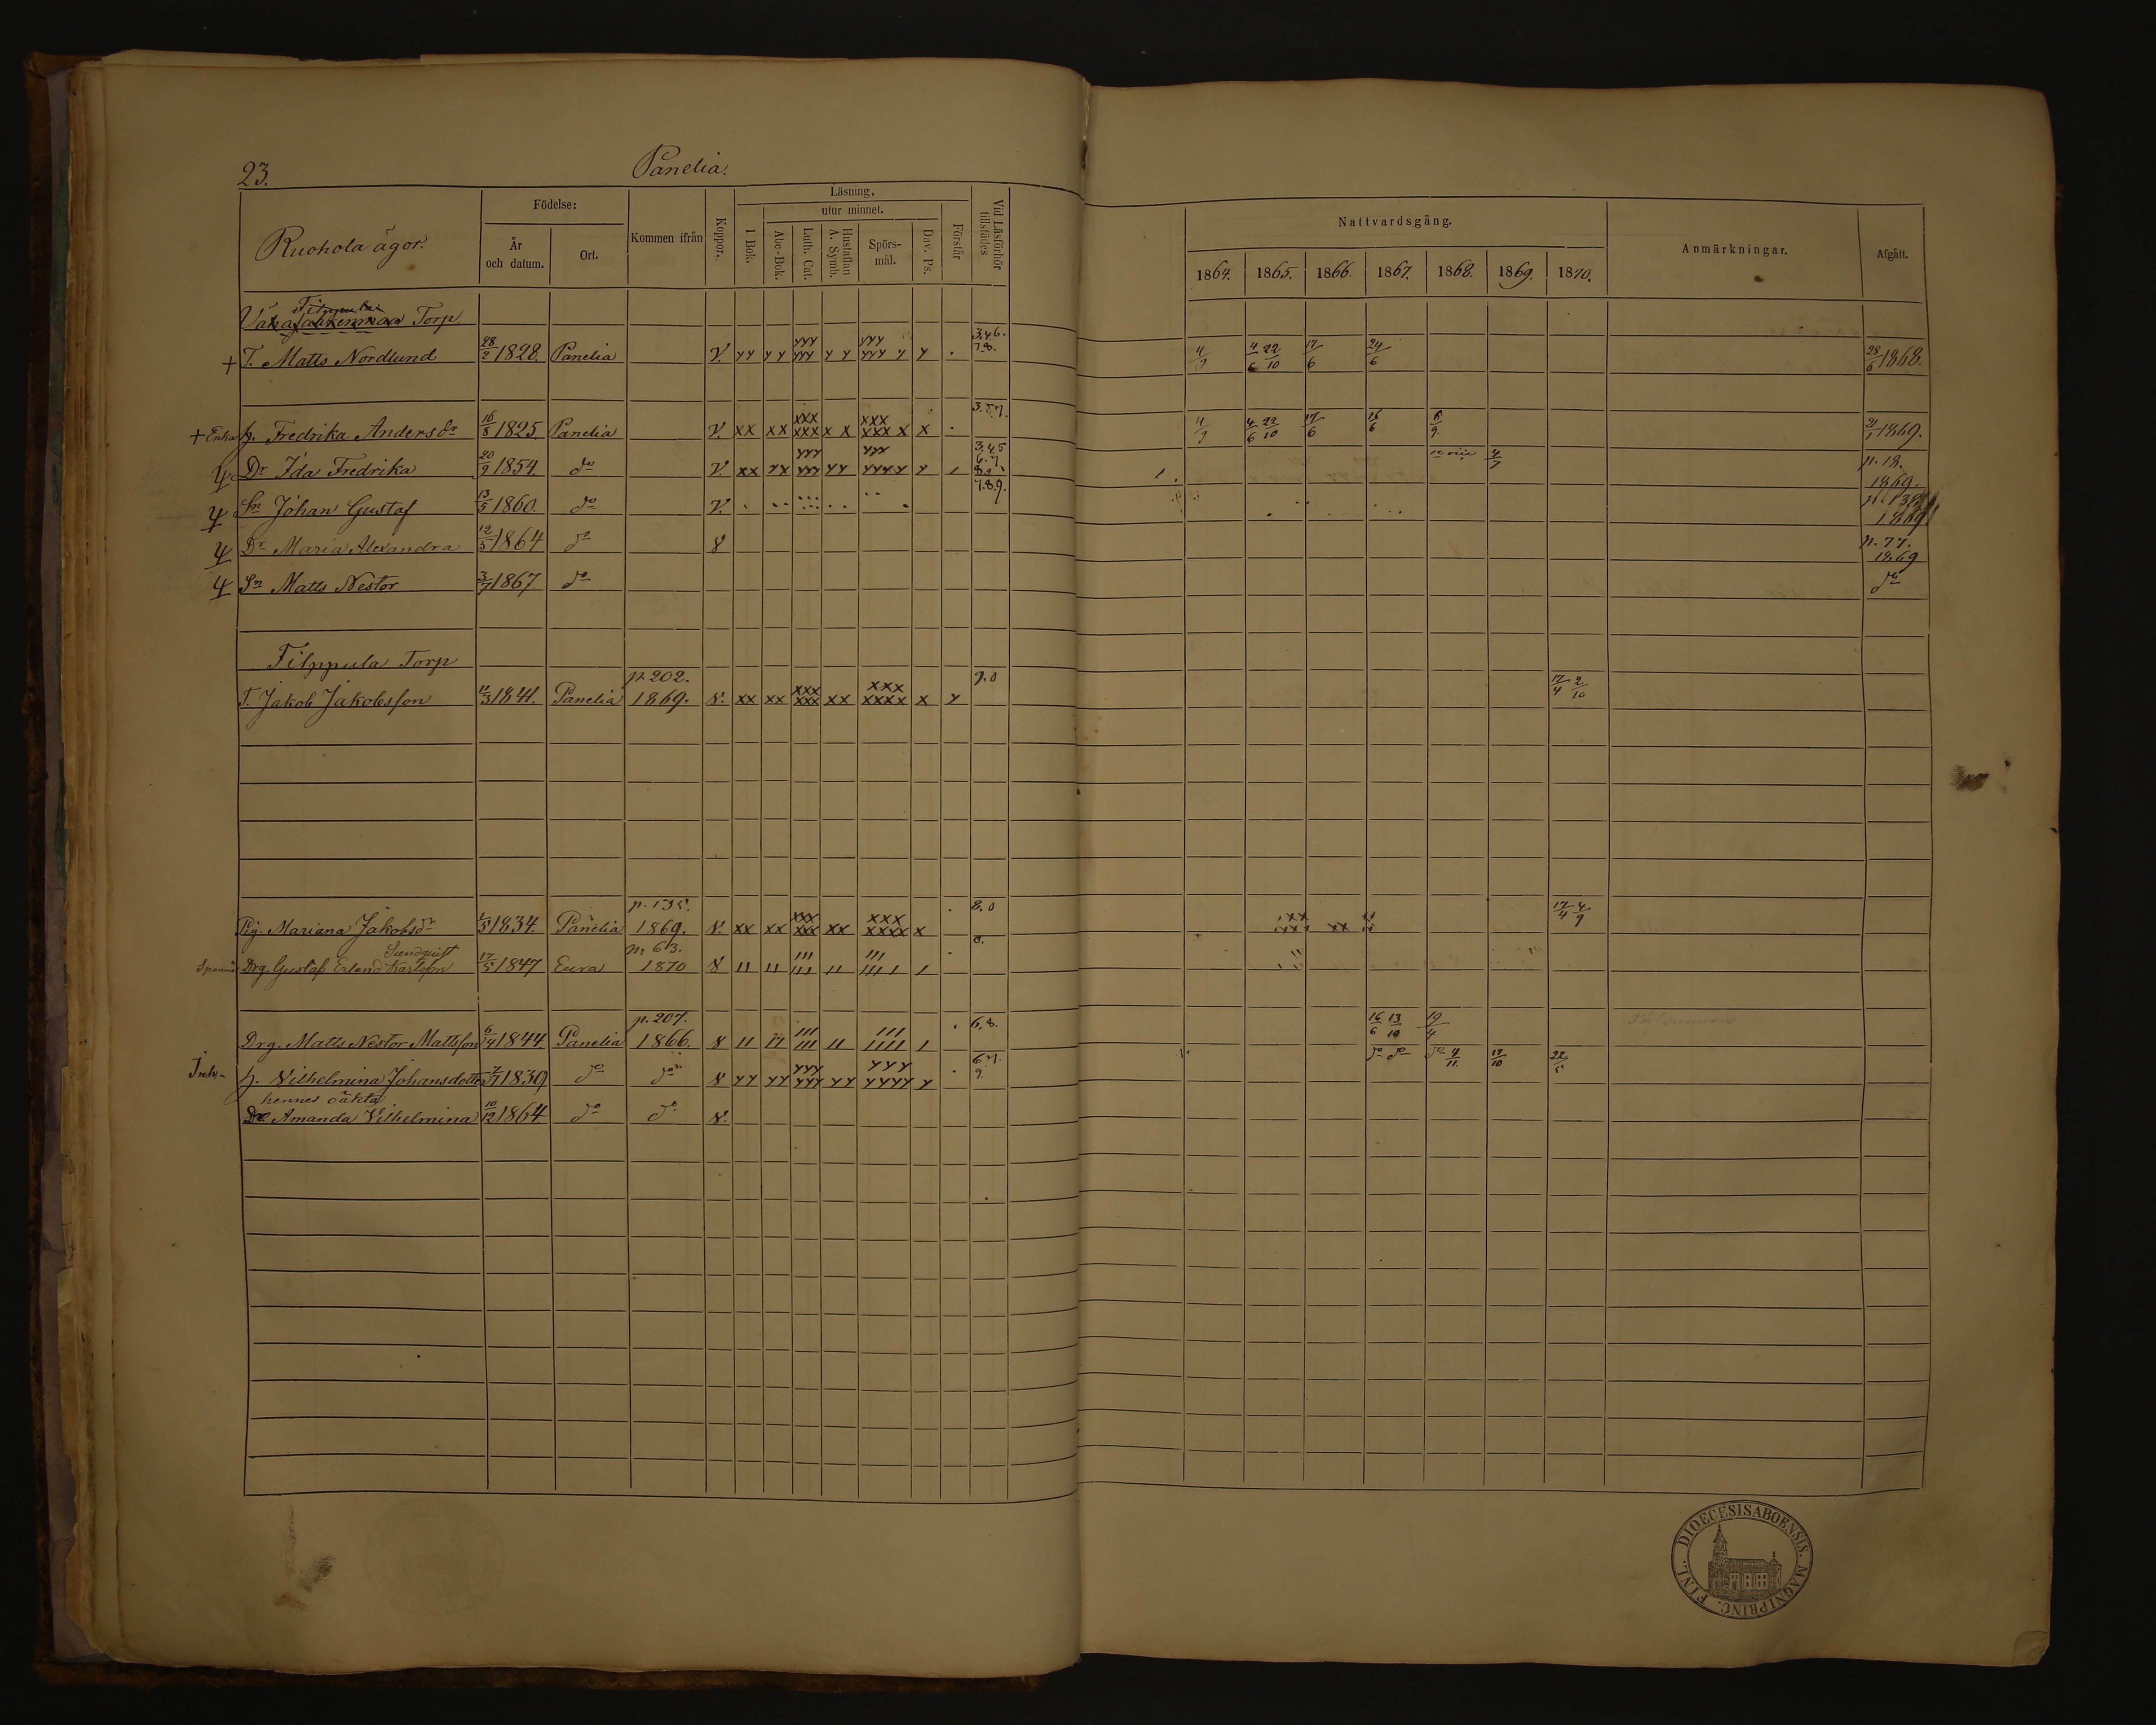 23.
Panelia.
Ruohola ägor.
Födelse:
År och datum.
Ort.
Kommen ifrån
Koppor.
Läsning.
I Bok.
utur minnet.
Abc-Bok.
Luth. Cat.
Hustaflan A. Symb.
Spörs-mål.
Dav. Ps.
Förstår
Vid Läsförhör tillstädes
Nattvardsgång.
1864. 1865. 1866. 1867. 1868. 1869. 1870.
Anmärkningar.
Afgått.
Torp
+ T. Matts Nordlund 28/2 1828. Panelia V. yy yy yyy yyy yy yyy yyy y y . 3.4.6. 7.8. 4/9 4/6 22/10 17/6 24/6 28/6 1868.
+ Enka h. Fredrika Andersdr 16/8 1825. Panelia V. xx xx xxx xxx x x xxx xxx x x . 3.5.7. 4/9 4/6 22/10 17/6 16/6 6/9 1869.
Dr Ida Fredrika 20/9 1854. do V. xx yx yyy yyy yy yyy yyyy y 3.4.5 6.7. 4/7 p. 18. 1869.
Sn Johan Gustaf 13/5 1860. do V. 7.8.9. 1869
Dr Maria Alexandra 12/5 1864 do p. 77. 1869
Sn Matts Nestor 3/7 1867. do do
Filppula Torp
T. Jakob Jakobsson 11/3 1841. Panelia p. 202. 1869. xx xx xxx xxx xx xxx xxxx x y 9.0 17/4 2/10
Pig. Mariana Jakobsdr 1834. Panelia 1869. xx xx xxx xxx xx xxx xxxx x 8.0 17/4 4/9
Sundquist
Drg. Gustaf Erland Karlsson 17/5 1847 Eura p. 63. 1870 0.
Drg. Matts Nestor Mattsson 6/4 1844 Panelia p. 207. 1866. 6.8. 16/6 13/10 19/4
Inh. h. Vilhelmina Johansdotter 7/7 1839 do do yy yy yyy yyy yy yyy yyyy y 6.7. 9. do do do 4/11. 17/10 22/5
hennes oäkta
Dr Amanda Vilhelmina 10/12 1864 do do
DIOECESIS ABOENSIS. MAGNI PRINC. FINL.